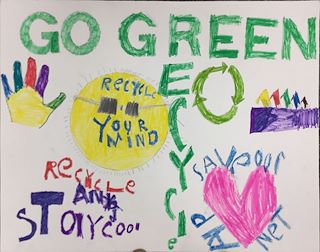 GO GREEN
RECYCLE
RECYCLE
YOUR
MIND
RECYCLE
AND
STAY COOL
SAVE OUR
PLANET